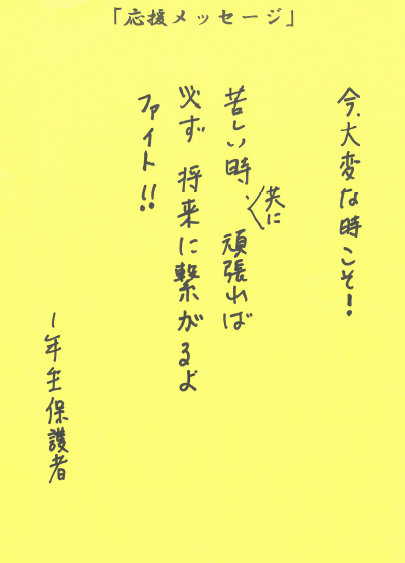 「応援メッセージ」
今、大変な時こそ!
苦しい時、共に頑張れば
必ず 将来に繋がるよ
ファイト!!
1年生保護者